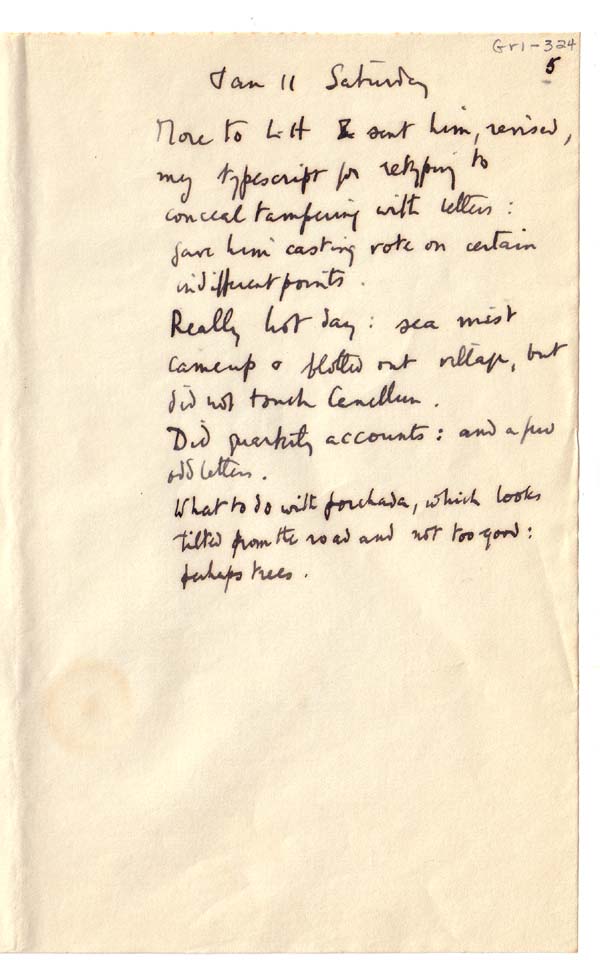 Gr1-324
5
Jan 11 Saturday
More to LH & sent him, revised,
my typescript for retyping to
conceal tampering with letters:
gave him casting vote on certain
indifferent points.
Really hot day: sea mist
came up & blotted out village, but
did not touch Canellun.
Did quarterly accounts: and a few
odd letters.
What to do with porchada, which looks
tilted from the road and not too good:
perhaps trees.